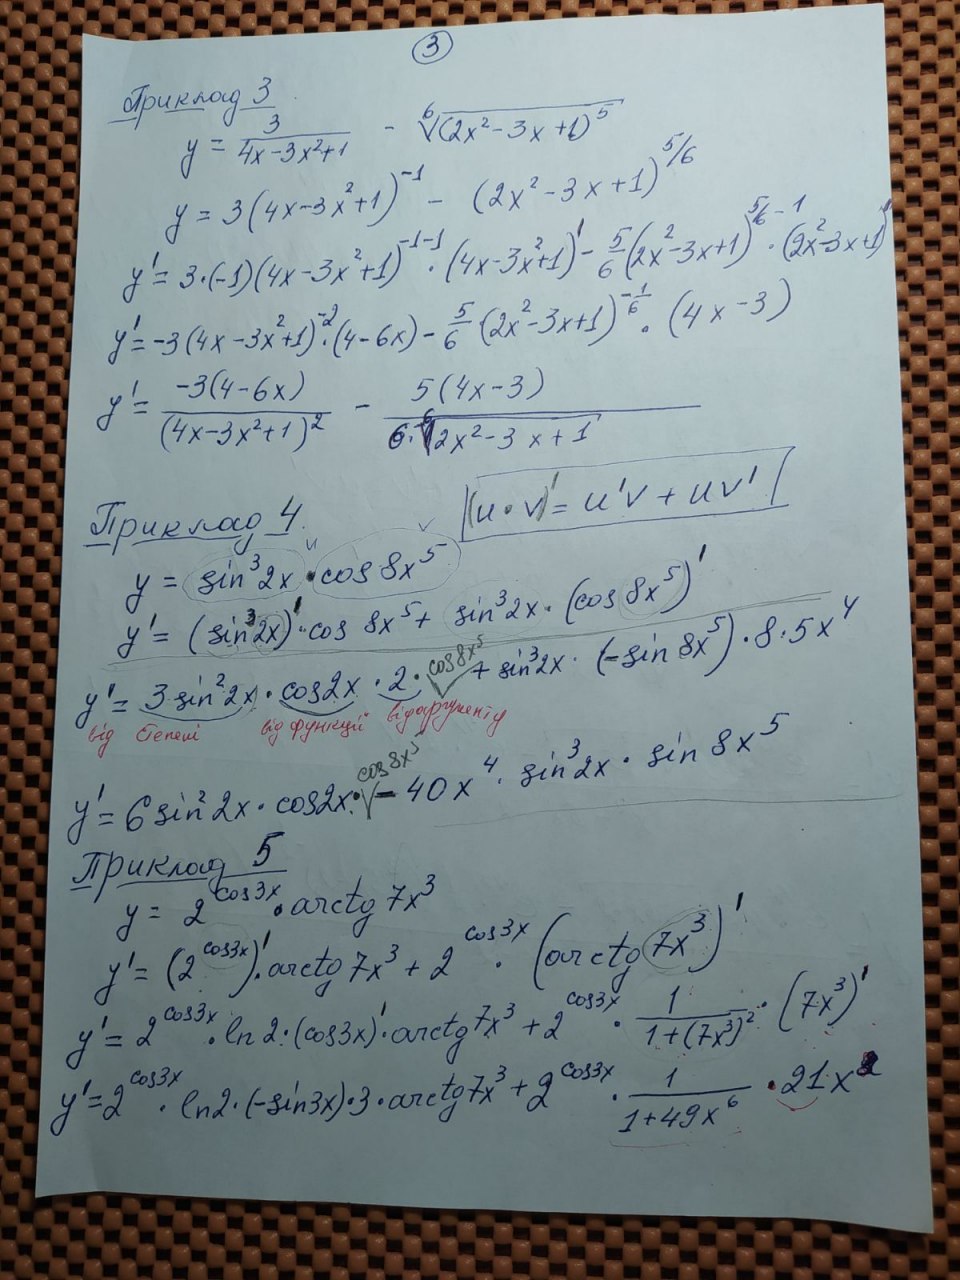 3
Приклад 3
y = 3/(4x-3x²+1) - ⁶√(2x²-3x+1)⁵
y = 3(4x-3x²+1)⁻¹ - (2x²-3x+1)^5/6
y' = 3·(-1)(4x-3x²+1)⁻¹⁻¹·(4x-3x²+1)' - 5/6(2x²-3x+1)^5/6-1·(2x²-3x+1)'
y' = -3(4x-3x²+1)⁻²·(4-6x) - 5/6(2x²-3x+1)^-1/6·(4x-3)
y' = -3(4-6x)/(4x-3x²+1)² - 5(4x-3)/(6·⁶√2x²-3x+1)
(u·v)' = u'v + uv'
Приклад 4
y = sin³2x·cos8x⁵
y' = (sin³2x)'·cos 8x⁵ + sin³2x·(cos 8x⁵)'
y' = 3sin²2x·cos2x·2·cos8x⁵ + sin³2x·(-sin8x⁵)·8·5x⁴
від степені від функції від аргументу
y' = 6sin²2x·cos2x·cos8x⁵ - 40x⁴·sin³2x·sin8x⁵
Приклад 5
y = 2^cos3x·arctg7x³
y' = (2^cos3x)'·arctg7x³ + 2^cos3x·(arctg7x³)'
y' = 2^cos3x·ln2·(cos3x)'·arctg7x³ + 2^cos3x·1/(1+(7x³)²)·(7x³)'
y' = 2^cos3x·ln2·(-sin3x)·3·arctg7x³ + 2^cos3x·1/(1+49x⁶)·21x²